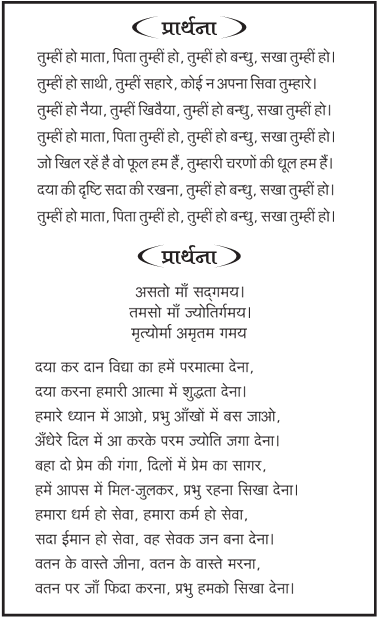 प्रार्थना
तुम्हीं हो माता, पिता तुम्हीं हो, तुम्हीं हो बन्धु, सखा तुम्हीं हो।
तुम्हीं हो साथी, तुम्हीं सहारे, कोई न अपना सिवा तुम्हारे।
तुम्हीं हो नैया, तुम्हीं खिवैया, तुम्हीं हो बन्धु, सखा तुम्हीं हो।
तुम्हीं हो माता, पिता तुम्हीं हो, तुम्हीं हो बन्धु, सखा तुम्हीं हो।
जो खिल रहें है वो फूल हम हैं, तुम्हारी चरणों की धूल हम हैं।
दया की दृष्टि सदा की रखना, तुम्हीं हो बन्धु, सखा तुम्हीं हो।
तुम्हीं हो माता, पिता तुम्हीं हो, तुम्हीं हो बन्धु, सखा तुम्हीं हो।
प्रार्थना
असतो माँ सद्गमय।
तमसो माँ ज्योतिर्गमय।
मृत्योर्मा अमृतम गमय
दया कर दान विद्या का हमें परमात्मा देना,
दया करना हमारी आत्मा में शुद्धता देना।
हमारे ध्यान में आओ, प्रभु आँखों में बस जाओ,
अँधेरे दिल में आ करके परम ज्योति जगा देना।
बहा दो प्रेम की गंगा, दिलों में प्रेम का सागर,
हमें आपस में मिल-जुलकर, प्रभु रहना सिखा देना।
हमारा धर्म हो सेवा, हमारा कर्म हो सेवा,
सदा ईमान हो सेवा, वह सेवक जन बना देना।
वतन के वास्ते जीना, वतन के वास्ते मरना,
वतन पर जाँ फिदा करना, प्रभु हमको सिखा देना।